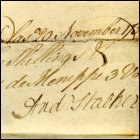 20 November 17
Shillings &
de Hemppe 3
And Stalker